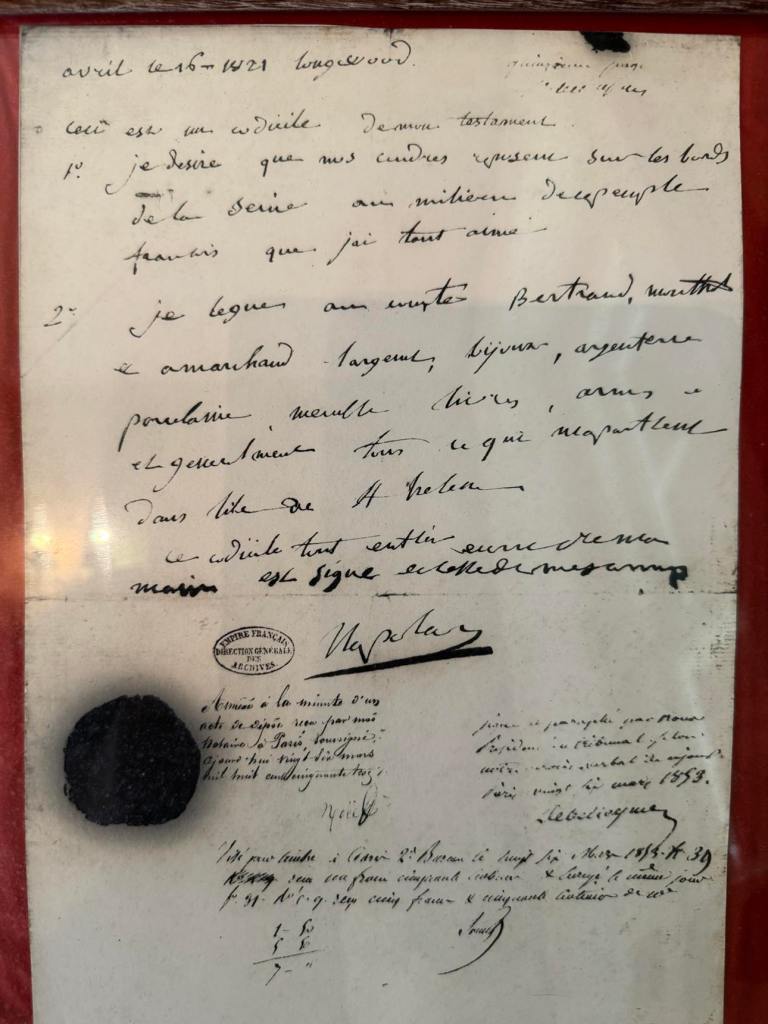 avril le 16 1821 longwood.
quinzieme page
ceci est un codicile de mon testament
1º je desire que mes cendres reposent sur les bords
de la Seine au milieu de ce peuple
francais que jai tant aimé
2º je legue au comte Bertrand, montholon
et a marchand largent, bijoux, argenterie
porcelaine, meuble livres, armes
et generalement tous ce qui mapartient
dans lile de St helene
ce codicile tout entier ecrit de ma
main est signé et scellé de mes armes
Napoleon
EMPIRE FRANÇAIS
DIRECTION GÉNÉRALE
DES
ARCHIVES
Annexé à la minute d'un
acte de dépôt reçu par moi
Notaire à Paris, soussigné,
aujourd'hui vingt six mars
mil huit cent cinquante trois
signé et paraphé par nous
Président du tribunal
notre procès verbal de aujourd
Paris vingt six mars 1853.
Visé pour timbre à Paris 2e Bureau le vingt six Mars 1853
un franc cinquante centimes & enregé le même jour
reçu cinq francs & cinquante centimes de
1 - 50
5 50
7 - "